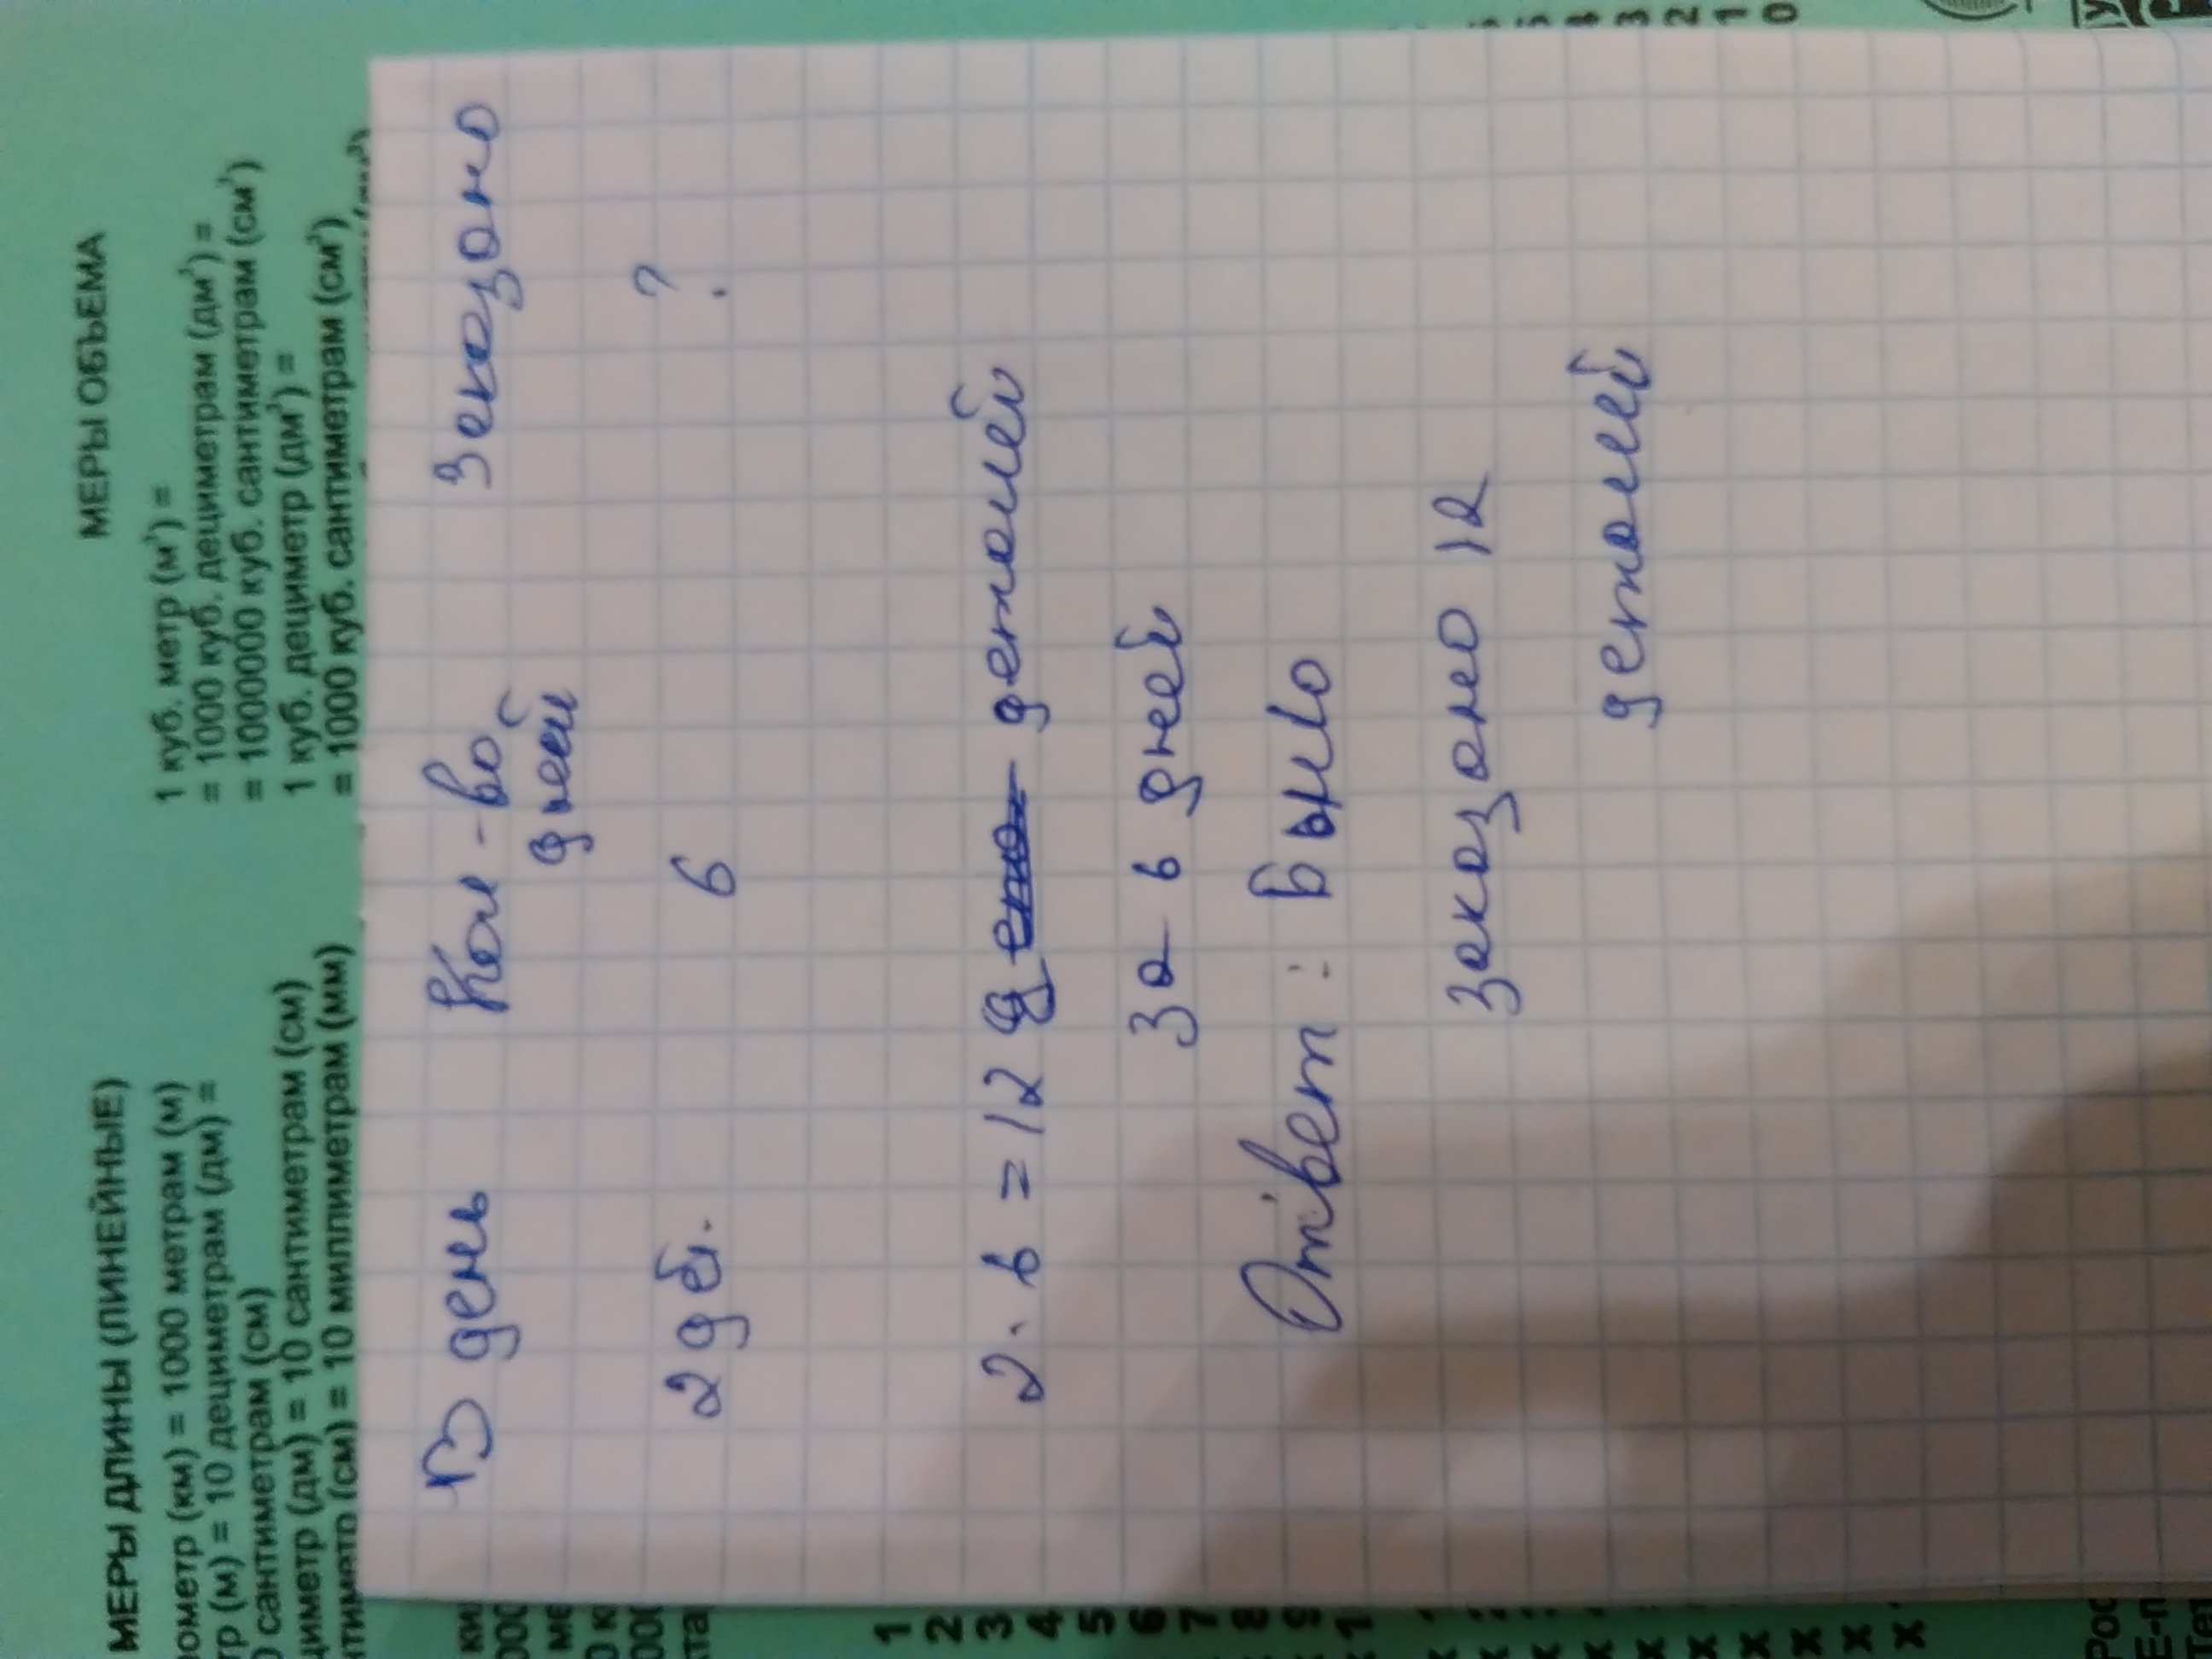 МЕРЫ ДЛИНЫ (ЛИНЕЙНЫЕ)
ометр (км) = 1000 метрам (м)
тр (м) = 10 дециметрам (дм) =
сантиметрам (см)
циметр (дм) = 10 сантиметрам (см)
нтиметр (см) = 10 миллиметрам (мм)
МЕРЫ ОБЪЕМА
1 куб. метр (м³) =
= 1000 куб. дециметрам (дм³) =
= 1000000 куб. сантиметрам (см³)
1 куб. дециметр (дм³) =
= 1000 куб. сантиметрам (см³)
В день Кол-во дней Заказано
2 дет. 6 ?
2 · 6 = 12 деталей
за 6 дней
Ответ: было
заказано 12
деталей
1
2
3
4
5
6
7
8
9
1
5
4
3
2
1
0